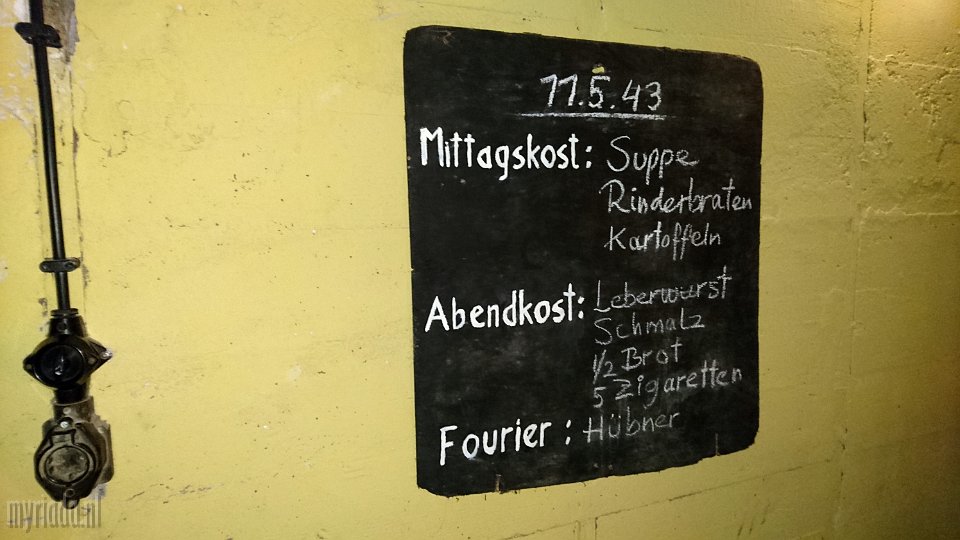 11.5.43
Mittagskost: Suppe
Rinderbraten
Kartoffeln
Abendkost: Leberwurst
Schmalz
1/2 Brot
5 Zigaretten
Fourier: Hübner
myriada.nl